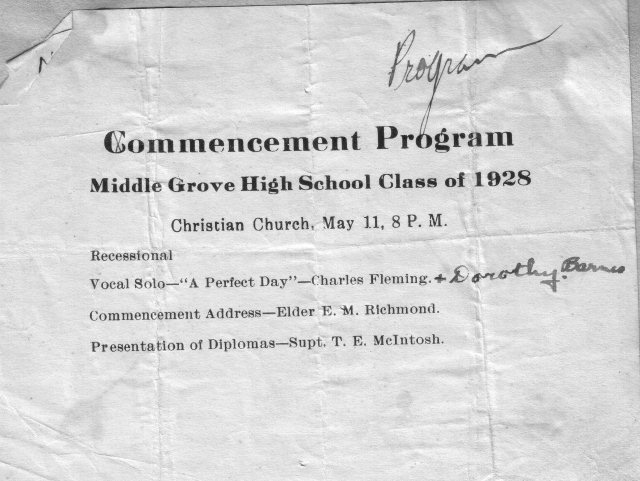 Program
Commencement Program
Middle Grove High School Class of 1928
Christian Church, May 11, 8 P. M.
Recessional
Vocal Solo—"A Perfect Day"—Charles Fleming. + Dorothy Barnes
Commencement Address—Elder E. M. Richmond.
Presentation of Diplomas—Supt. T. E. McIntosh.